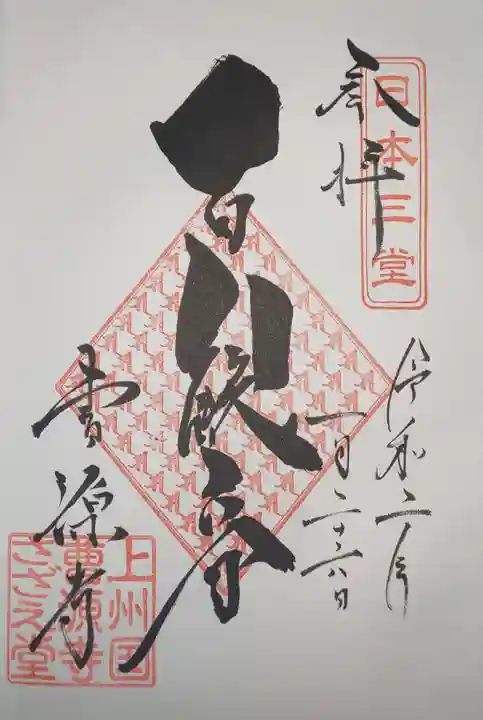 日本三堂
奉拝
令和二年
一月二十六日
百観音
曹源寺
上州国
曹源寺
さゞえ堂